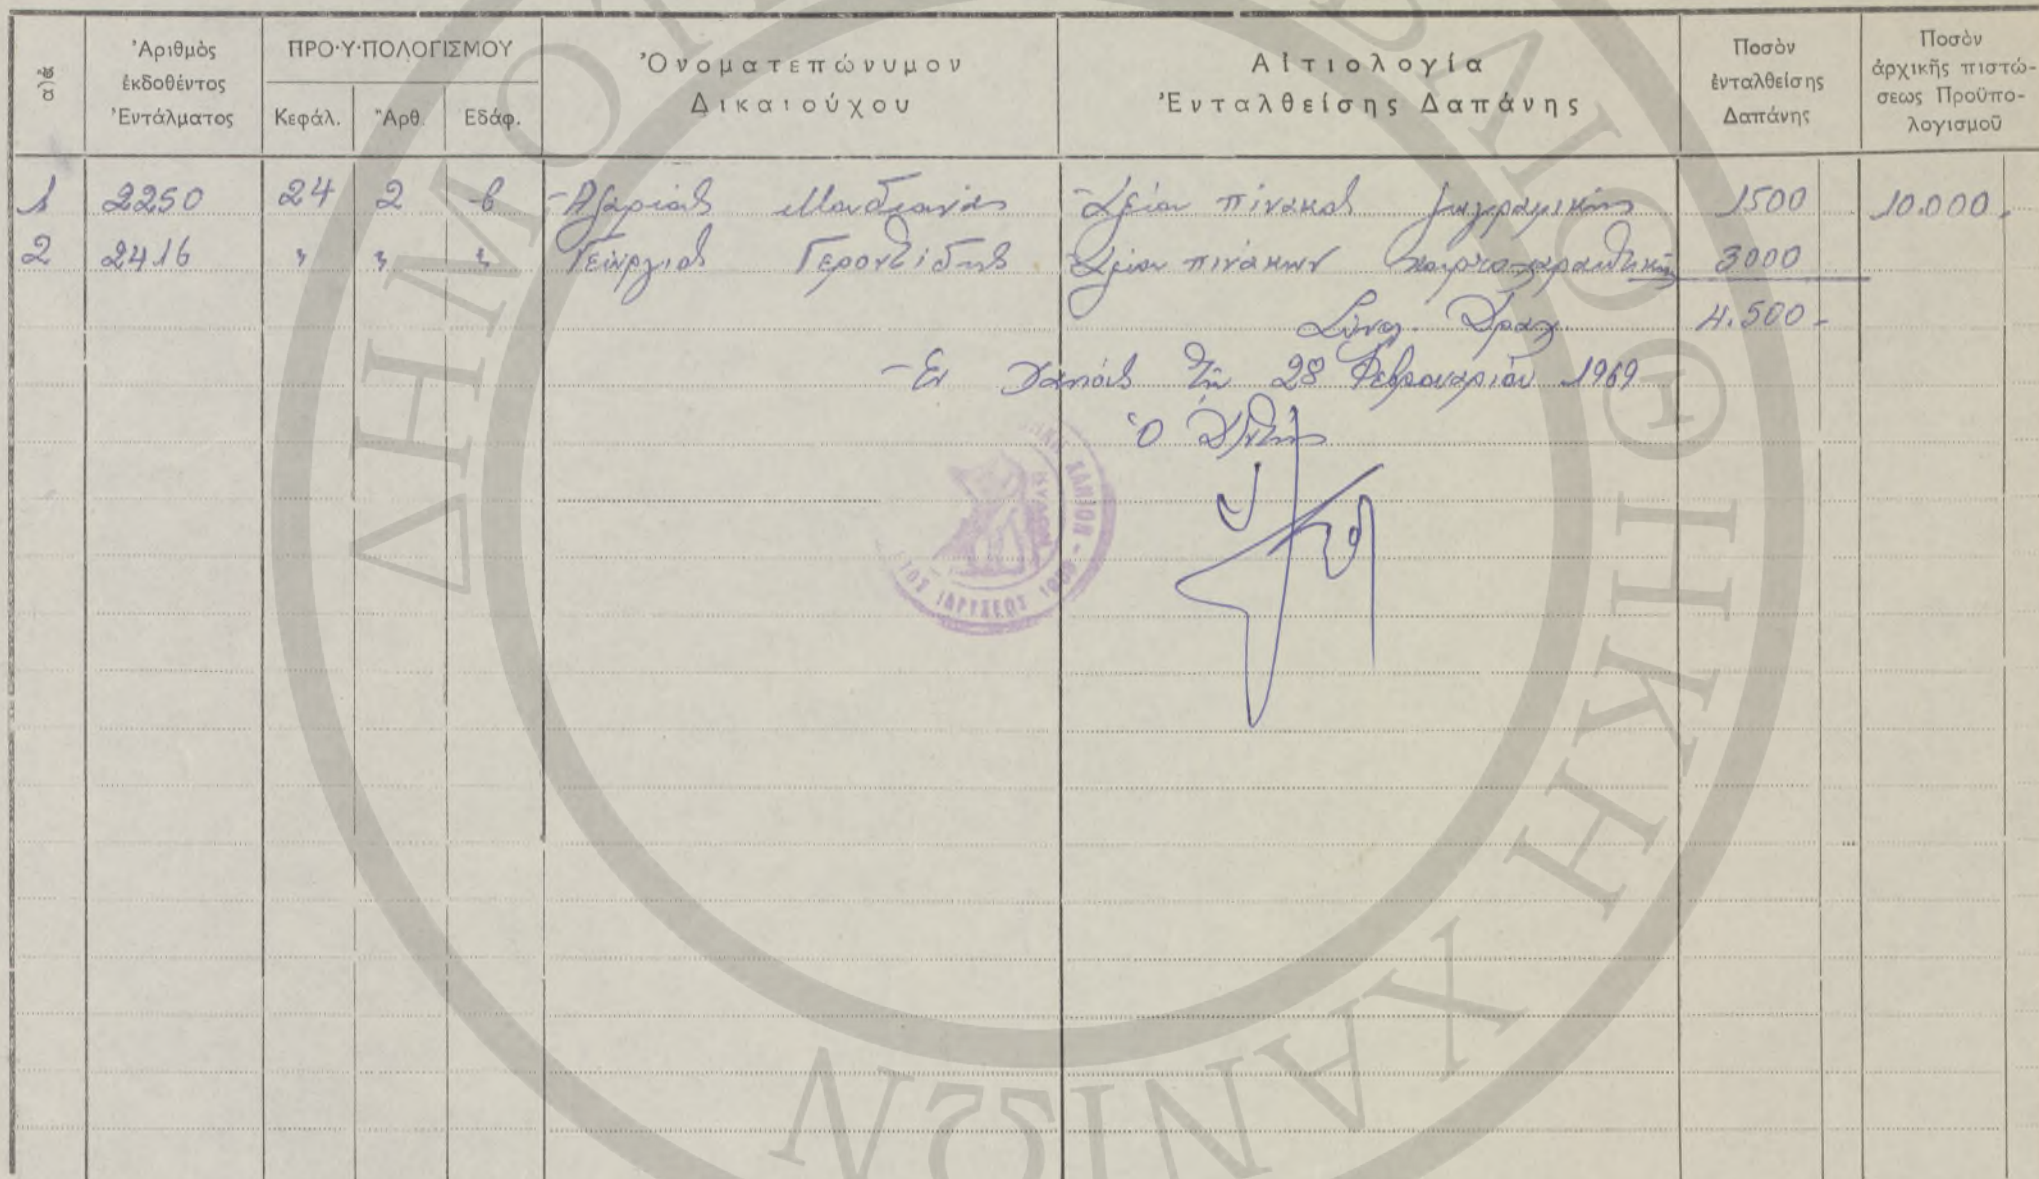 α)α
Ἀριθμὸς ἐκδοθέντος Ἐντάλματος
ΠΡΟ·Υ·ΠΟΛΟΓΙΣΜΟΥ
Κεφάλ. Ἄρθ. Εδάφ.
Ὀνοματεπώνυμον Δικαιούχου
Αἰτιολογία Ἐνταλθείσης Δαπάνης
Ποσὸν ἐνταλθείσης Δαπάνης
Ποσὸν ἀρχικῆς πιστώσεως Προϋπολογισμοῦ
1 2250 24 2 β Ἀζαρίας Μανδιανάς Ἀξίαν πίνακος ζωγραφικῆς 1500 10.000
2 2416 " " " Γεώργιος Γεροντίδης Ἀξίαν πινάκων 3000
Σύνολ. Δραχ. 4.500-
Ἐν Χανίοις τῇ 28 Φεβρουαρίου 1969
Ὁ Δ/ντής
ΧΑΝΙΩΝ
ΕΤΟΣ ΙΔΡΥΣΕΩΣ
ΔΗΜΟΤ ΒΛΙΟΘΗΚΗ ΧΑΝΙΩΝ